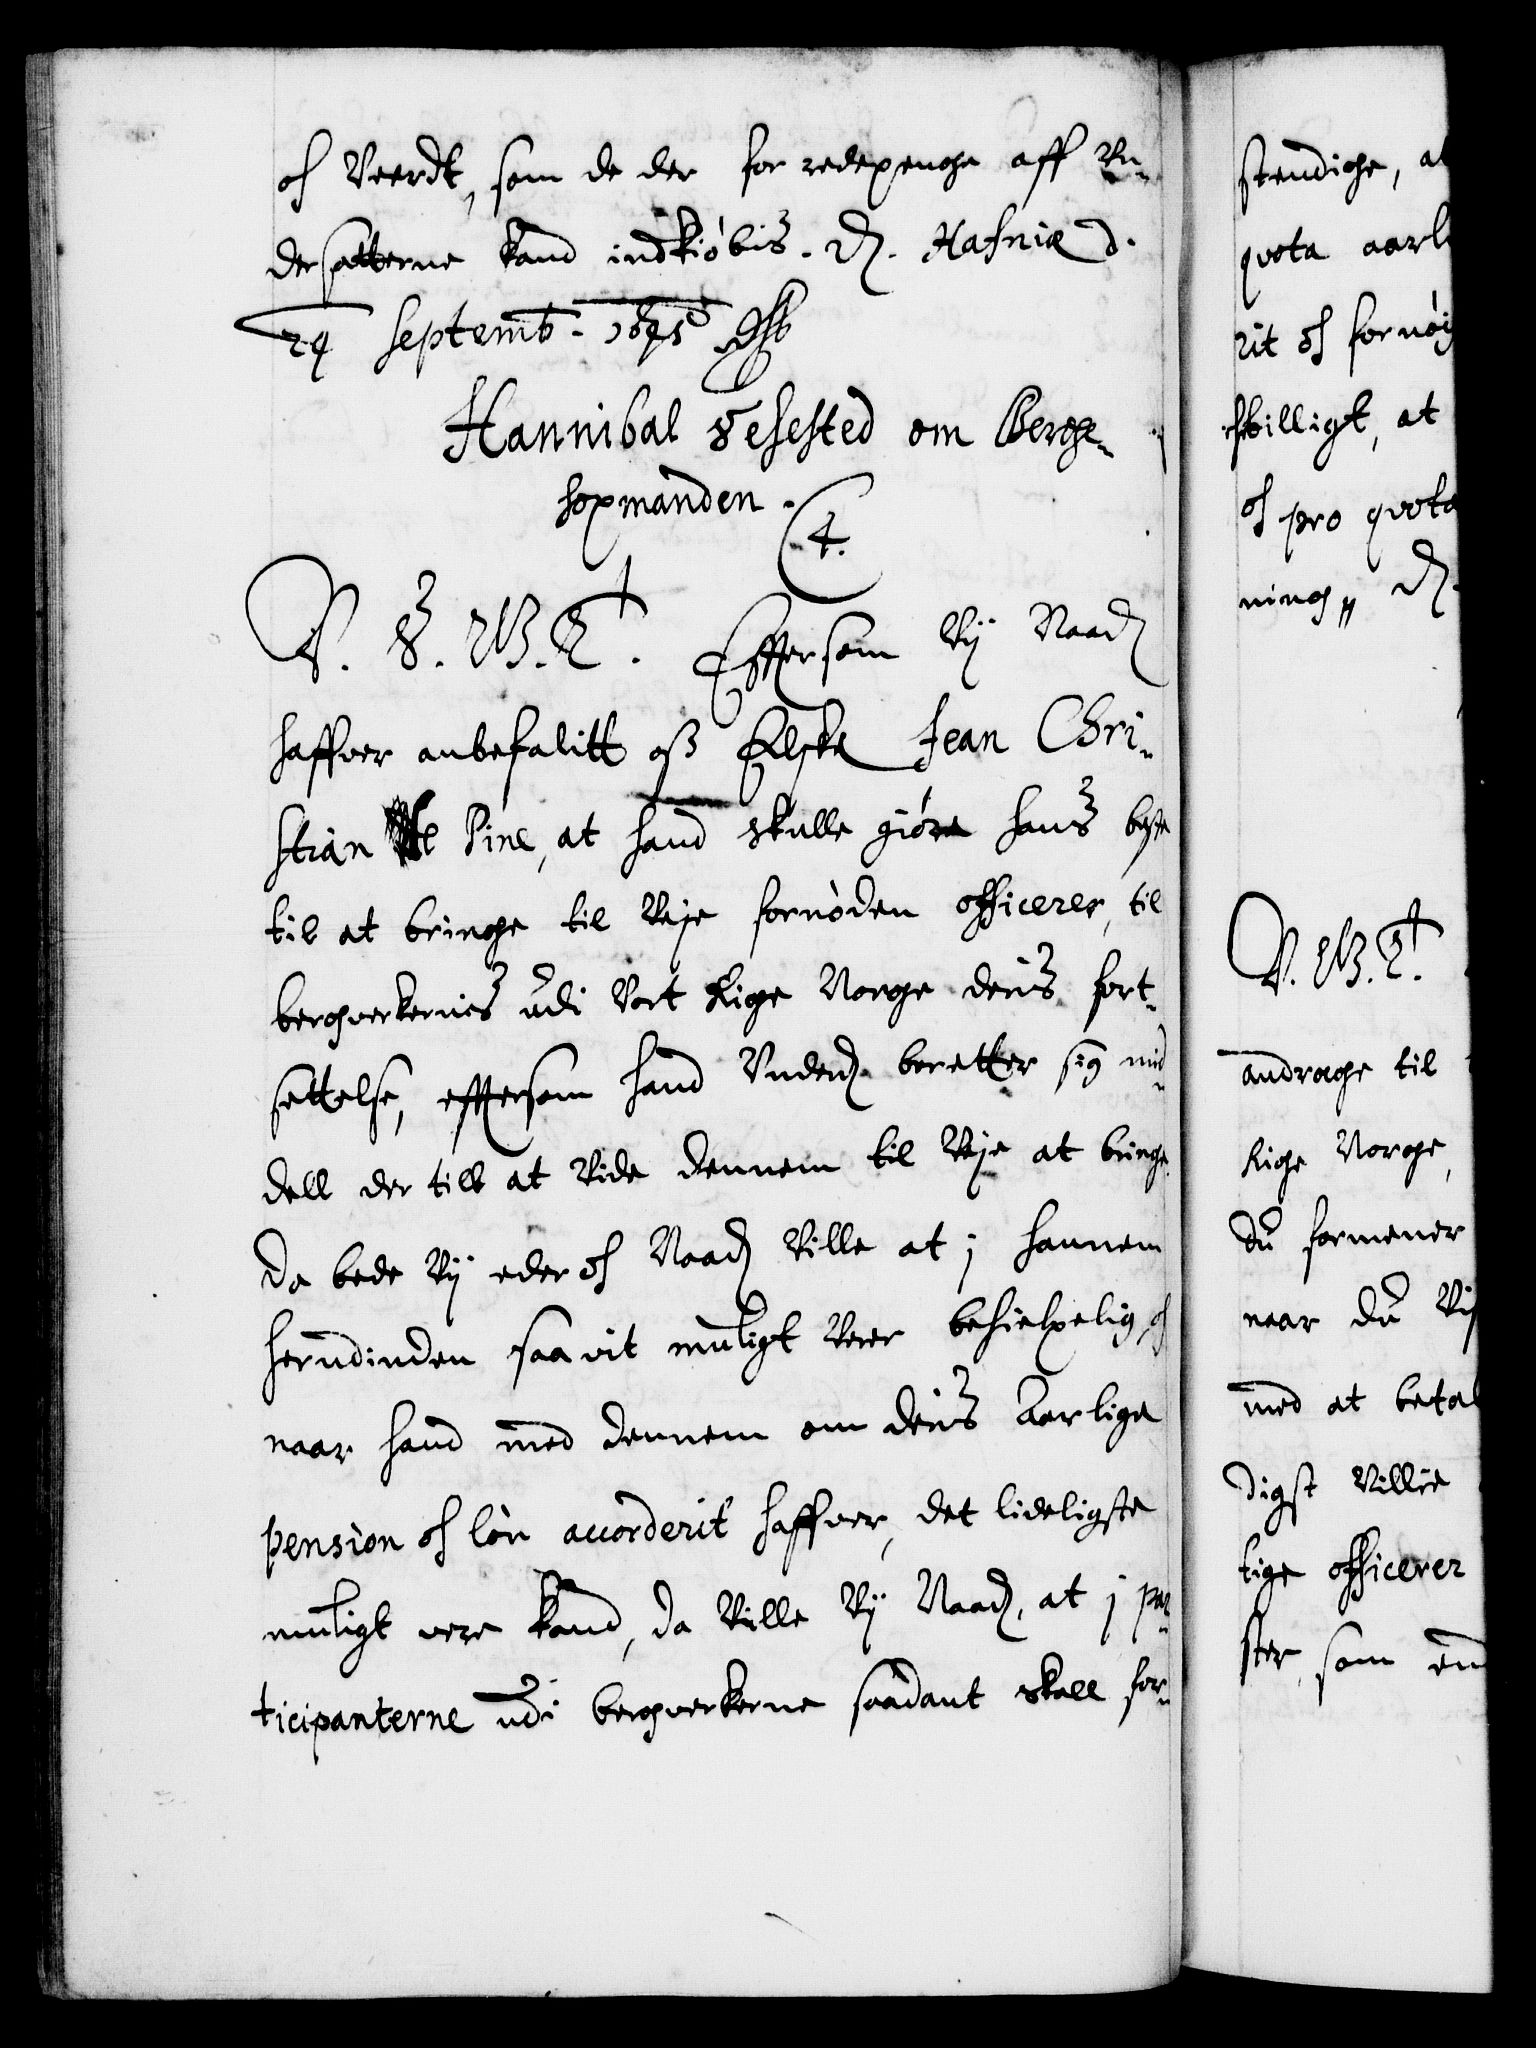 och Veerdt, som de der for redepenge aff Vn-
dersatterne kand indkiöbis. Dat. Hafniæ d.
24 Septemb. 1645
Hannibal Sehested om Berge-
hopmanden.
4.
C. 4. V. S. G. T. Eftersom Vij Naadst
haffver anbefalitt oss Elske Jean Chri-
stian Pine, at hand skulle giöre hans beste
til at bringe til Veje fornöden officerer, til
bergverkernis udi Vort Rige Norge deris fort-
settelse, eftersom hand Underd. beretter sig mid-
dell der till at Vide dennem til Veje at bringe.
Da bede Vij eder och Naadst Ville at j hannem
herudinden saa vit muligt Veer behielpelig, och
naar hand med dennem om deris Aarlige
pension och lön accorderit haffver, det lideligste
muligt vere kand, da Ville Vij Naadst, at j par-
ticipanterne udi bergverkerne saadant skall for-
stendige, at
quota aarl
rit och fornöy
skilligt, at
och pro quota
ning, D.
C. V. G. T.
andrage til
Rige Norge,
du formener
naar du Vis
med at betal
digst Villie
tige officerer
ster, som end